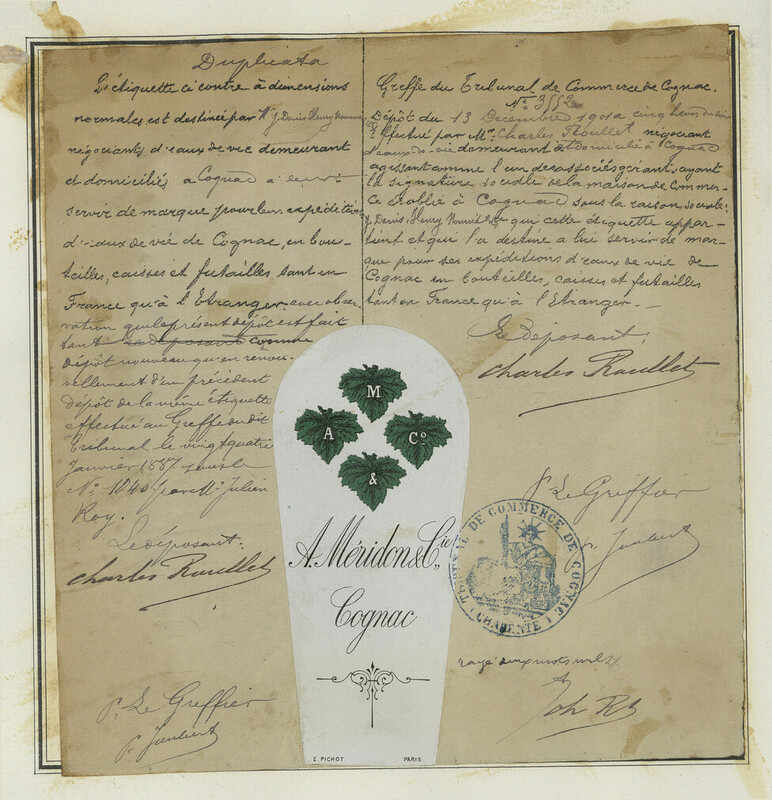 Duplicata
L'étiquette ci contre à dimensions
normales est destinée par Mrs J. Denis Henry Mounié
négociants d'eaux de vie demeurant
et domiciliés à Cognac à leur
servir de marque pour leurs expéditions
d'eaux de vie de Cognac, en bou-
teilles, caisses et futailles tant en
France qu'à l'Etranger avec obser-
vation que le présent dépôt est fait
tant comme
dépôt nouveau qu'en renou-
vellement d'un précédent
dépôt de la même étiquette
effectué au Greffe du dit
Tribunal le vingt quatre
Janvier 1887 sous le
No 1040 par Mr Julien
Roy.
Le déposant.
Charles Roullet
P. Le Greffier
P. Jaubert
Greffe du Tribunal de Commerce de Cognac.
No 3552
Dépôt du 13 Décembre 1901 à cinq heures du soir
Effectué par Mr Charles Roullet négociant
d'eaux-de-vie demeurant et domicilié à Cognac
agissant comme l'un des associés gérant, ayant
la signature sociale de la maison de Commer-
ce établie à Cognac sous la raison sociale:
J. Denis, Henry Mounié & Co qui cette étiquette appar-
tient et qui l'a destiné à lui servir de mar-
que pour ses expéditions d'eaux de vie de
Cognac en bouteilles, caisses et futailles
tant en France qu'à l'Etranger.
Le déposant.
Charles Roullet
P. Le Greffier
P. Jaubert
TRIBUNAL DE COMMERCE DE COGNAC
(CHARENTE)
rayé deux mots nuls
M
A
Co
&
A. Méridon & Cie
Cognac
E. PICHOT PARIS